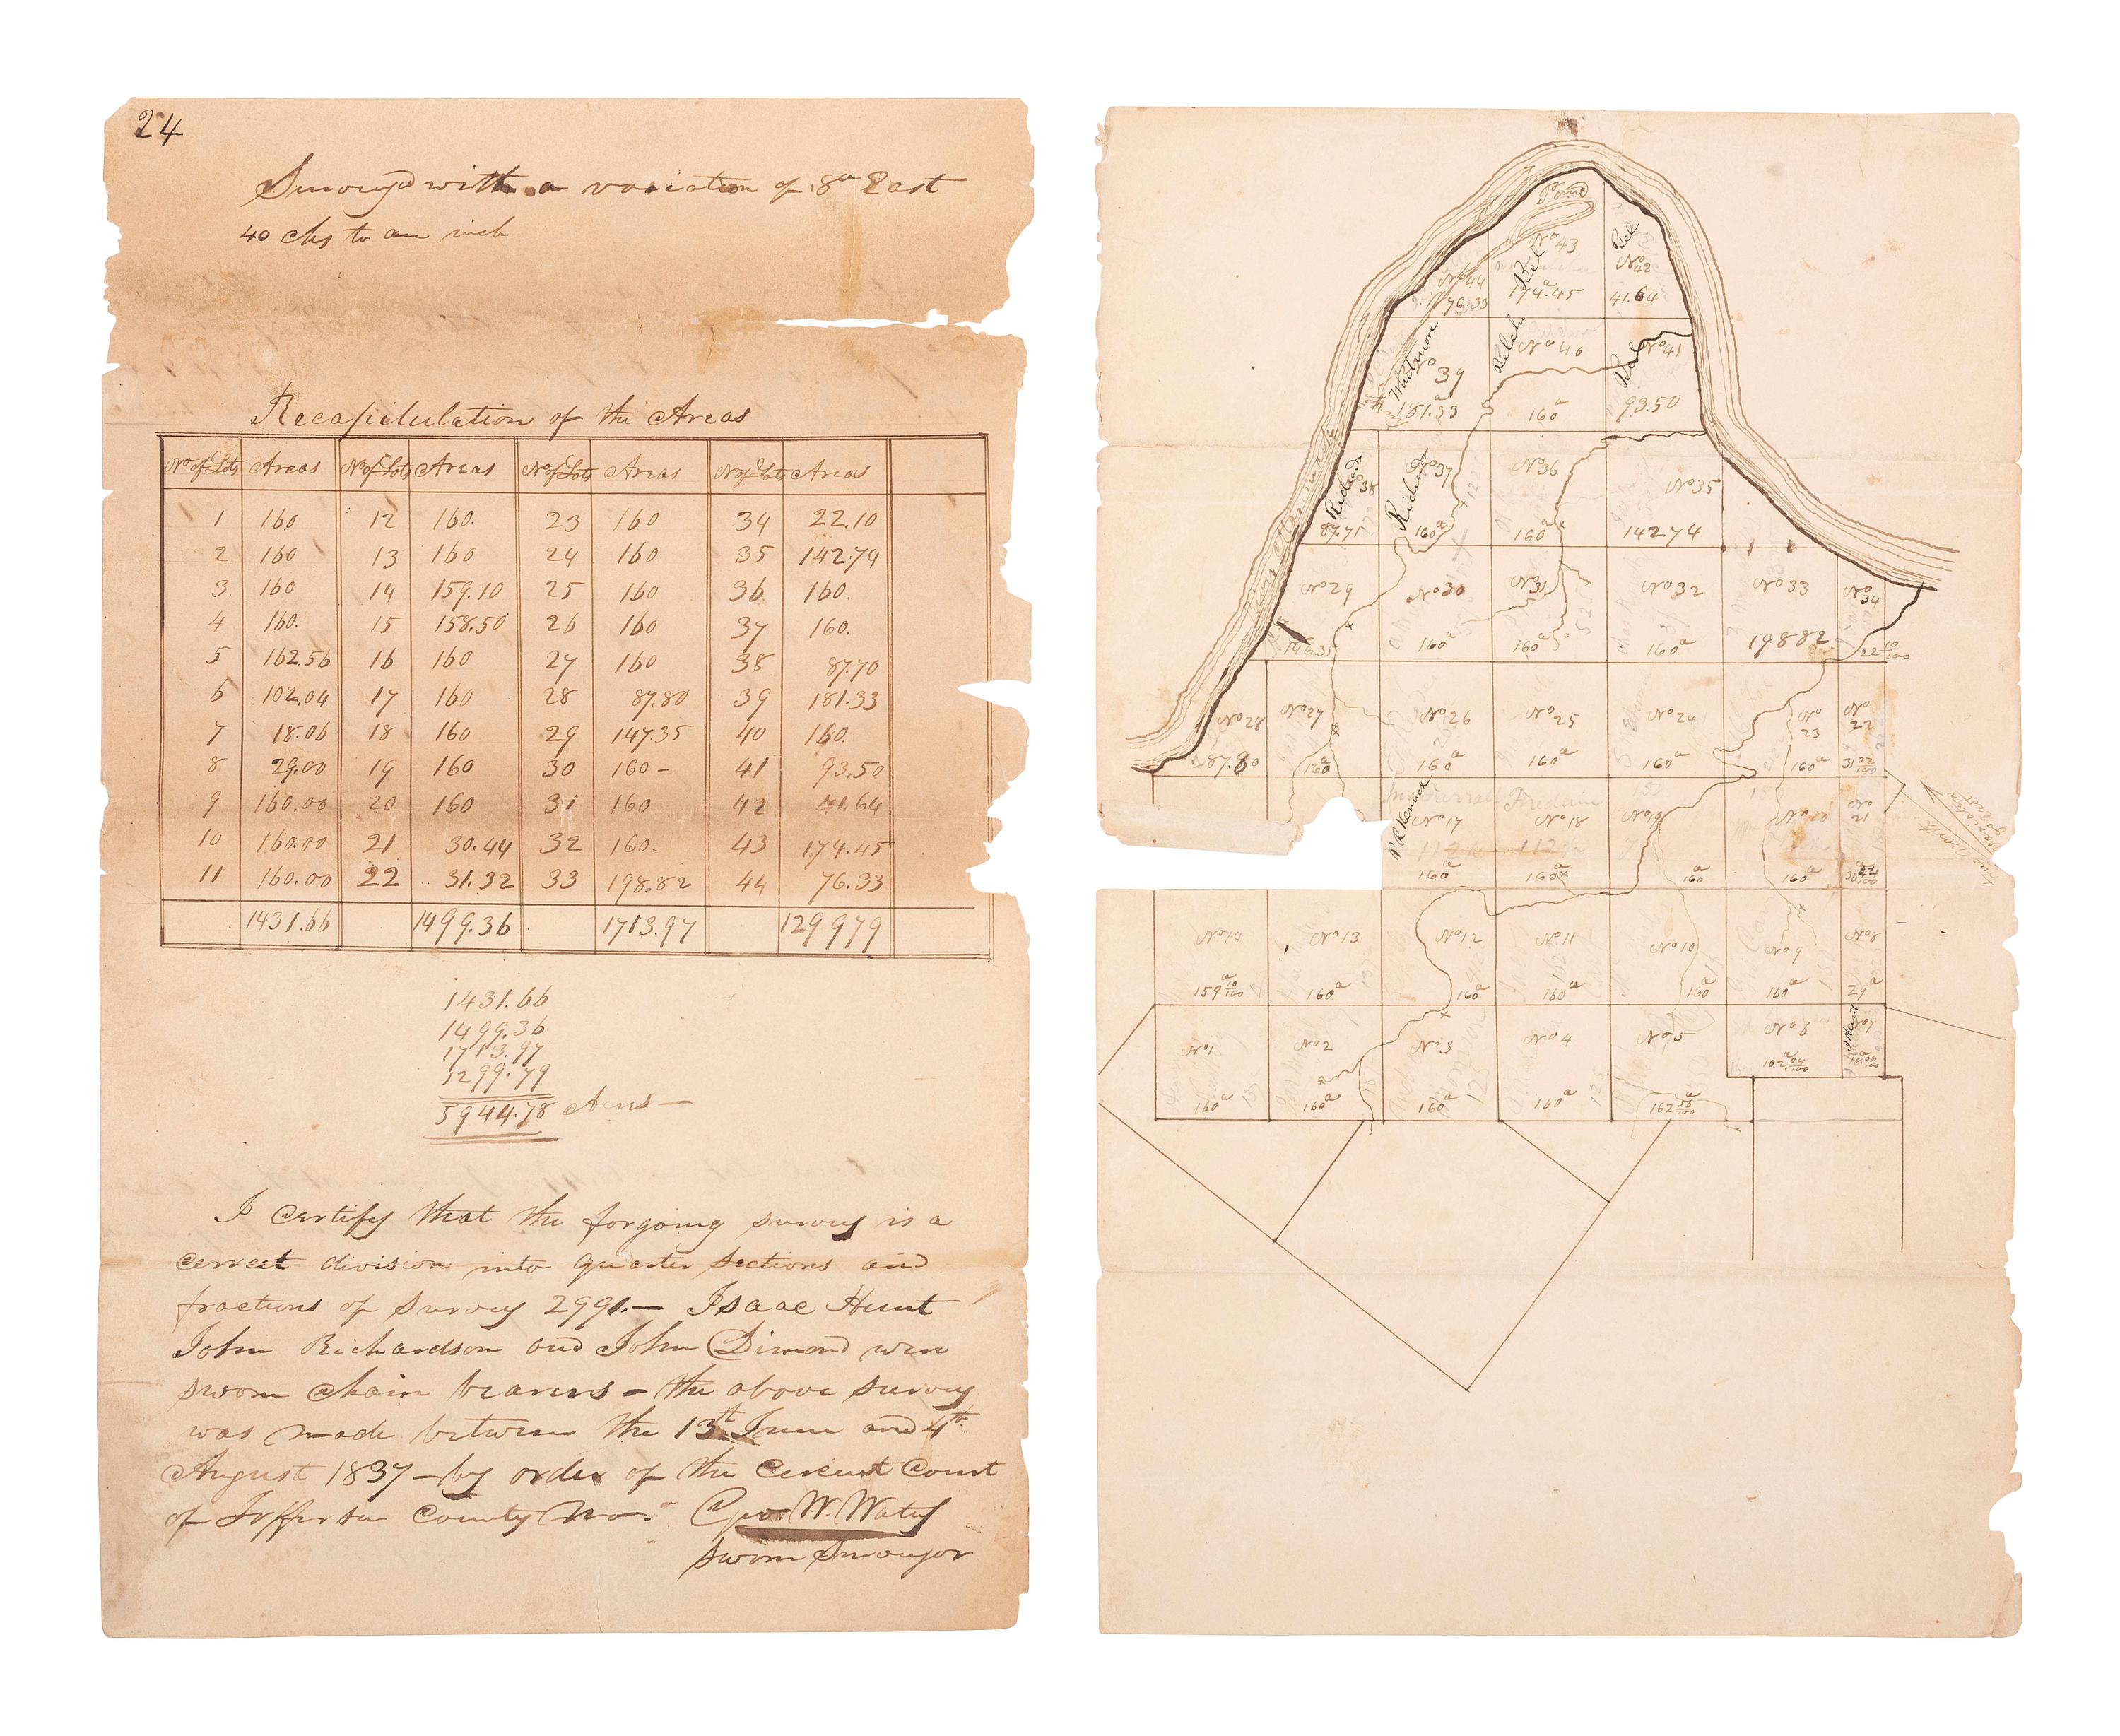 24
Survey'd with a variation of 8° East
40 chs to an inch
Recapitulation of the Areas
No of Lots Areas No of Lots Areas No of Lots Areas No of Lots Areas
1 160 12 160. 23 160 34 22.10
2 160 13 160 24 160. 35 142.74
3 160 14 159.10 25 160 36 160.
4 160. 15 158.50 26 160 37 160.
5 162.56 16 160 27 160 38 87.70
6 102.04 17 160 28 87.80 39 181.33
7 18.06 18 160 29 147.35 40 160.
8 29.00 19 160 30 160- 41 93.50
9 160.00 20 160 31 160 42 41.64
10 160.00 21 30.44 32 160. 43 174.45
11 160.00 22 31.32 33 198.82 44 76.33
1431.66 1499.36 1713.97 129979
1431.66
1499.36
1713.97
1299.79
5944.78 Acres —
I certify that the forgoing survey is a
correct division into quarter sections and
fractions of survey 2991.— Isaac Hunt
John Richardson and John Dimond were
sworn chain bearers – the above survey
was made between the 13th June and 4th
August 1837 – by order of the Circuit Court
of Jefferson County Mo. Geo. W. Waters
Sworn Surveyor
Pond
No 43
Bel
174a.45
Bel
No 42
41.64
No 44
76.33
Whitmore
39
181a.33
No 40
160a
No 41
93.50
River Merrimack
38
87.75
Richardson
No 37
160a
No 36
160a
No 35
142.74
No 29
146.35
No 30
160a
No 31
160a
No 32
160a
No 33
198 82
No 34
22 10/100
No 28
87.80
No 27
160a
No 26
160a
No 25
160a
No 24
160a
No 23
160a
No 22
31 32/100
No 17
160a
No 18
160a
No 19
160a
No 20
160a
No 21
30 44/100
True North
No 14
159a 10/100
No 13
160a
No 12
160a
No 11
160a
No 10
160a
No 9
160a
No 8
29a
No 1
160a
No 2
160a
No 3
160a
No 4
160a
No 5
162 56/100
No 6
102a 04/100
No 7
18a 06/100